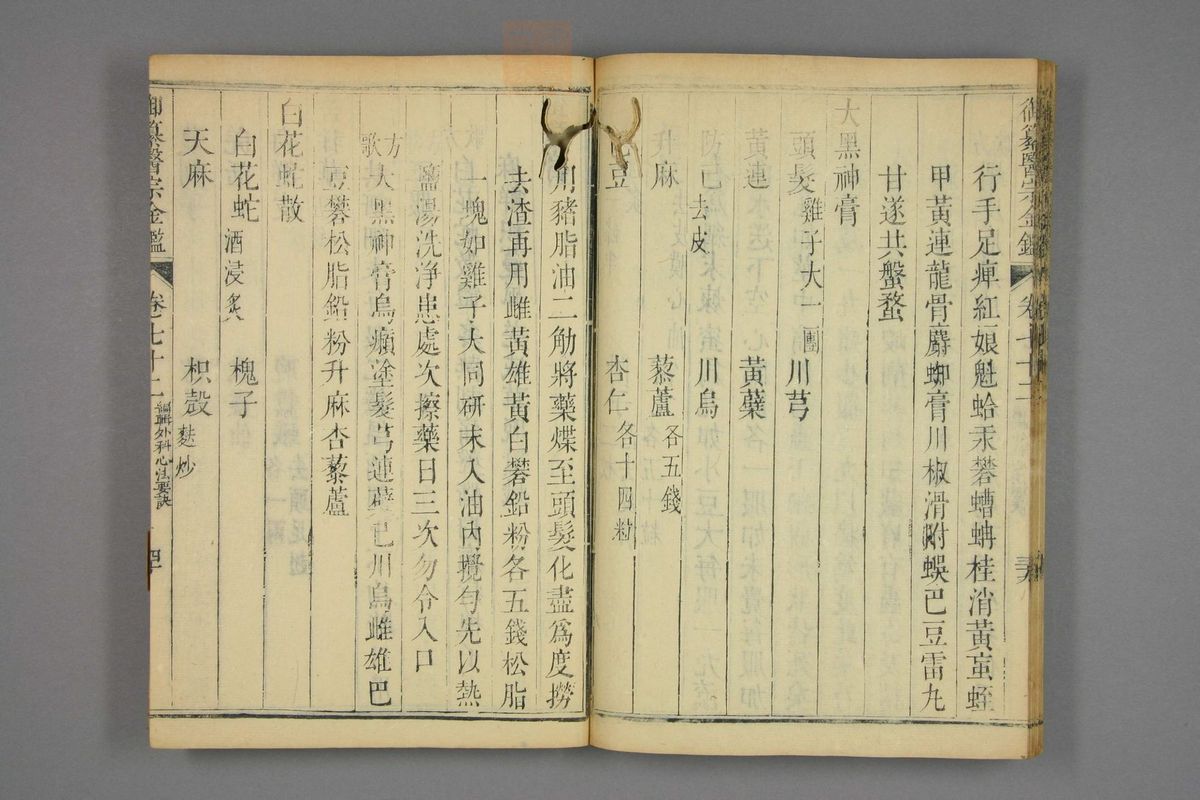 御纂醫宗金鑑 卷七十三
行手足痺紅娘魁蛤汞礬螬蜣桂消黃䖟蛭
甲黃連龍骨麝蜘膏川椒滑附蜈巴豆雷丸
甘遂共盤蝥
大黑神膏
頭髮雞子大一團 川芎
黃連 黃蘗
防己去皮 川烏
升麻 藜蘆各五錢
巴豆 杏仁各十四粒
用豬脂油二觔將藥煠至頭髮化盡為度撈
去渣再用雌黃雄黃白礬鉛粉各五錢松脂
一塊如雞子大同研末入油內攪勻先以熱
鹽湯洗淨患處次擦藥日三次勿令入口
方歌 大黑神膏烏癩塗髮芎連蘗已川烏雌雄巴
豆礬松脂鉛粉升麻杏藜蘆
白花蛇散
白花蛇酒浸炙 槐子
天麻 枳殼麩炒
御纂醫宗金鑑 卷七十三 編輯外科心法要訣